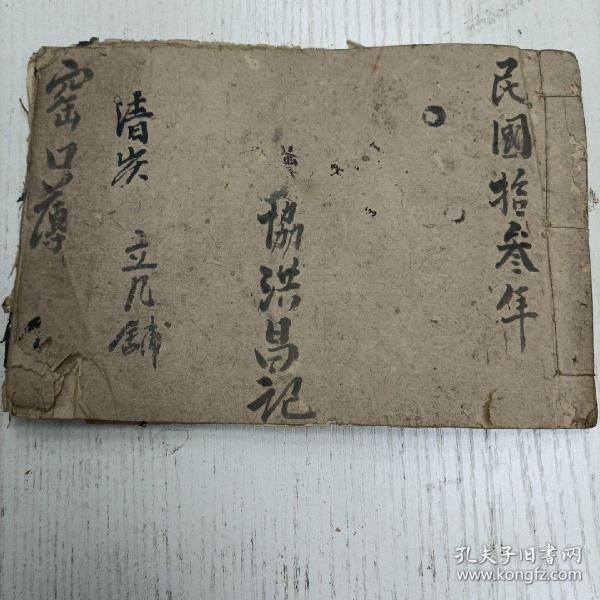 民國拾叁年
協洪昌記
清炭 立凡舖
窑口薄
孔夫子旧书网
www.kongfz.com